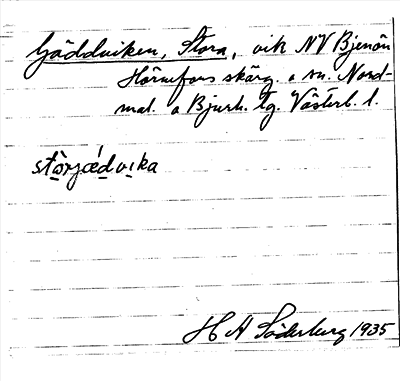 Gäddviken, Stora, vik NV Bjenön
Hörnefors skärg. o sn. Nord-
mal. o Bjurh. tg. Västerb. l.
stòrjǽdvika
H A Söderburg 1935